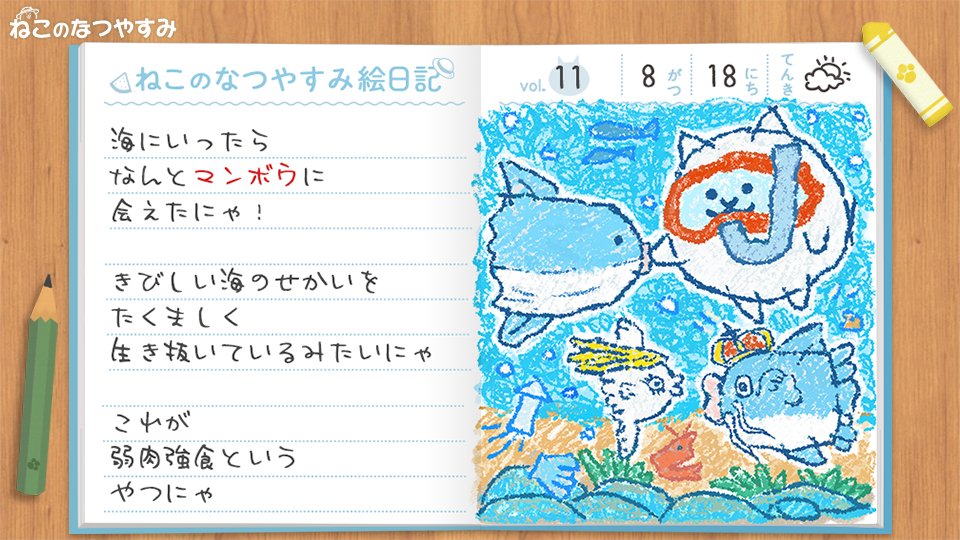 ねこのなつやすみ
ねこのなつやすみ絵日記
vol. 11 8がつ 18にち てんき
海にいったら
なんとマンボウに
会えたにゃ！
きびしい海のせかいを
たくましく
生き抜いているみたいにゃ
これが
弱肉強食という
やつにゃ